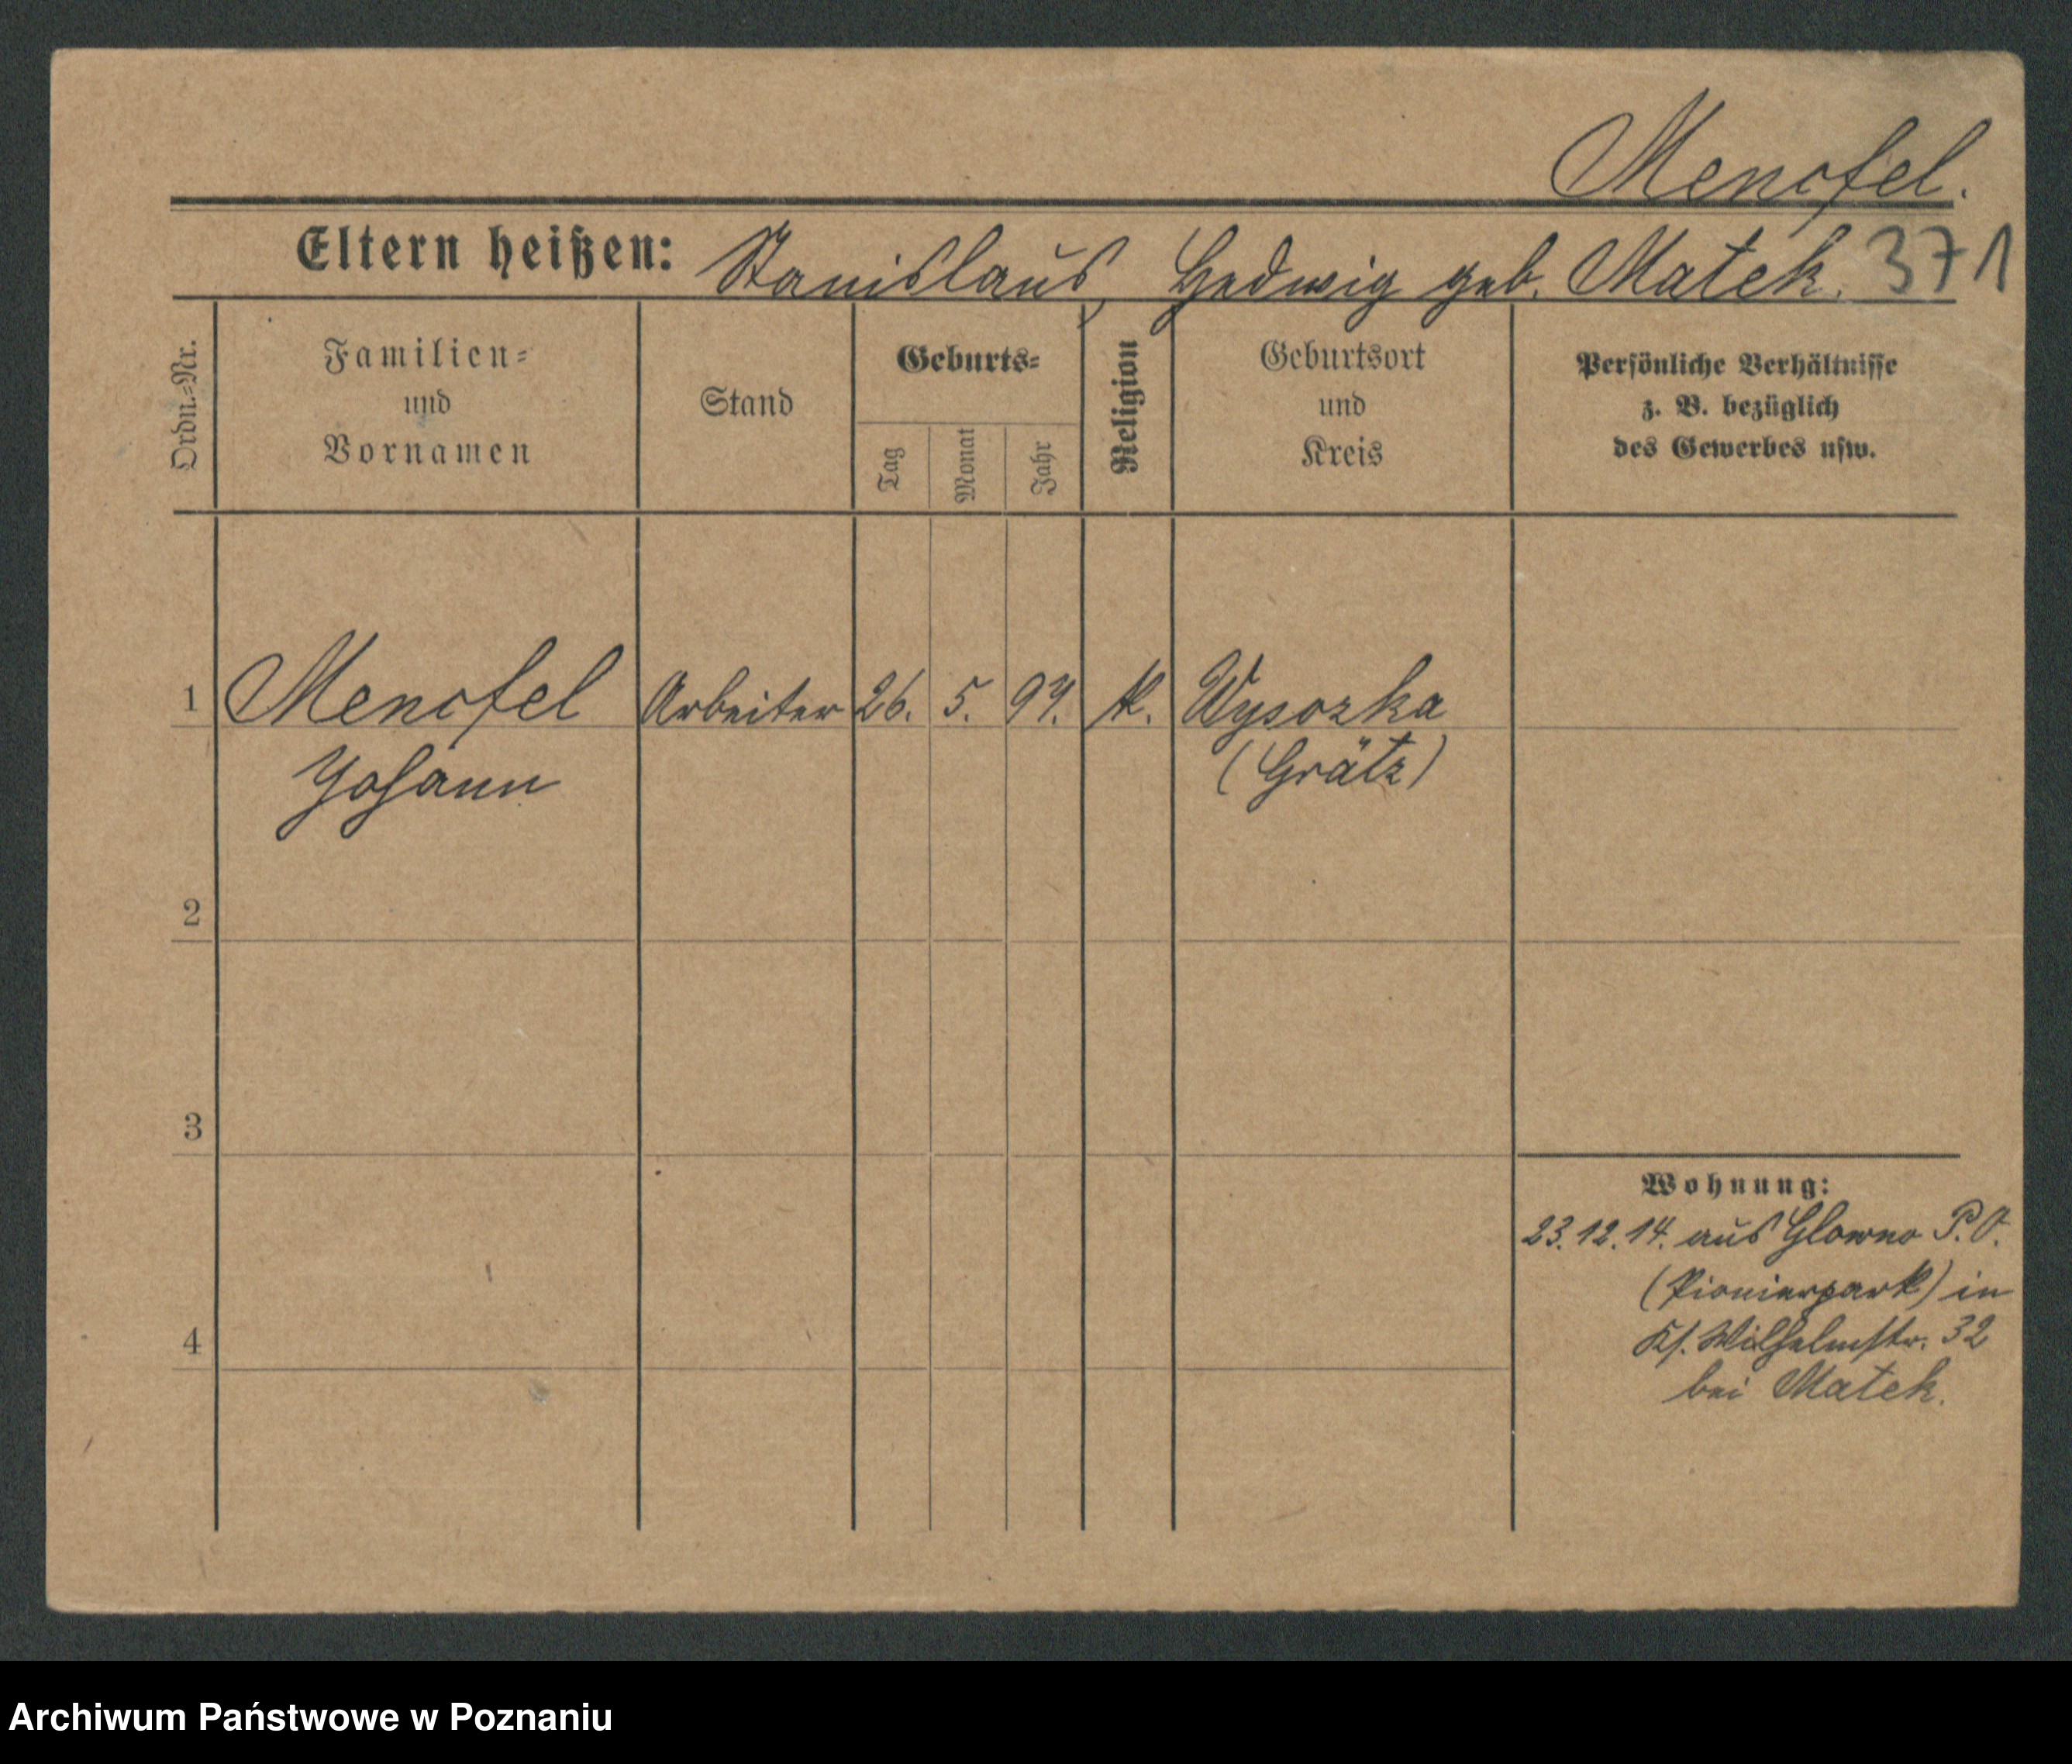 Mencfel.
Eltern heißen: Stanislaus, Hedwig geb. Matek. 371
Ordn.=Nr.
Familien=
und
Vornamen
Stand
Geburts=
Tag
Monat
Jahr
Religion
Geburtsort
und
Kreis
Persönliche Verhältnisse
z. B. bezüglich
des Gewerbes usw.
1 Mencfel Arbeiter 26. 5. 97. k. Wysozka
Johann (Grätz)
2
3
4
Wohnung:
23.12.14. aus Glowno P.O.
(Pionierpark) in
Ks. Wilhelmstr. 32
bei Matek.
Archiwum Państwowe w Poznaniu